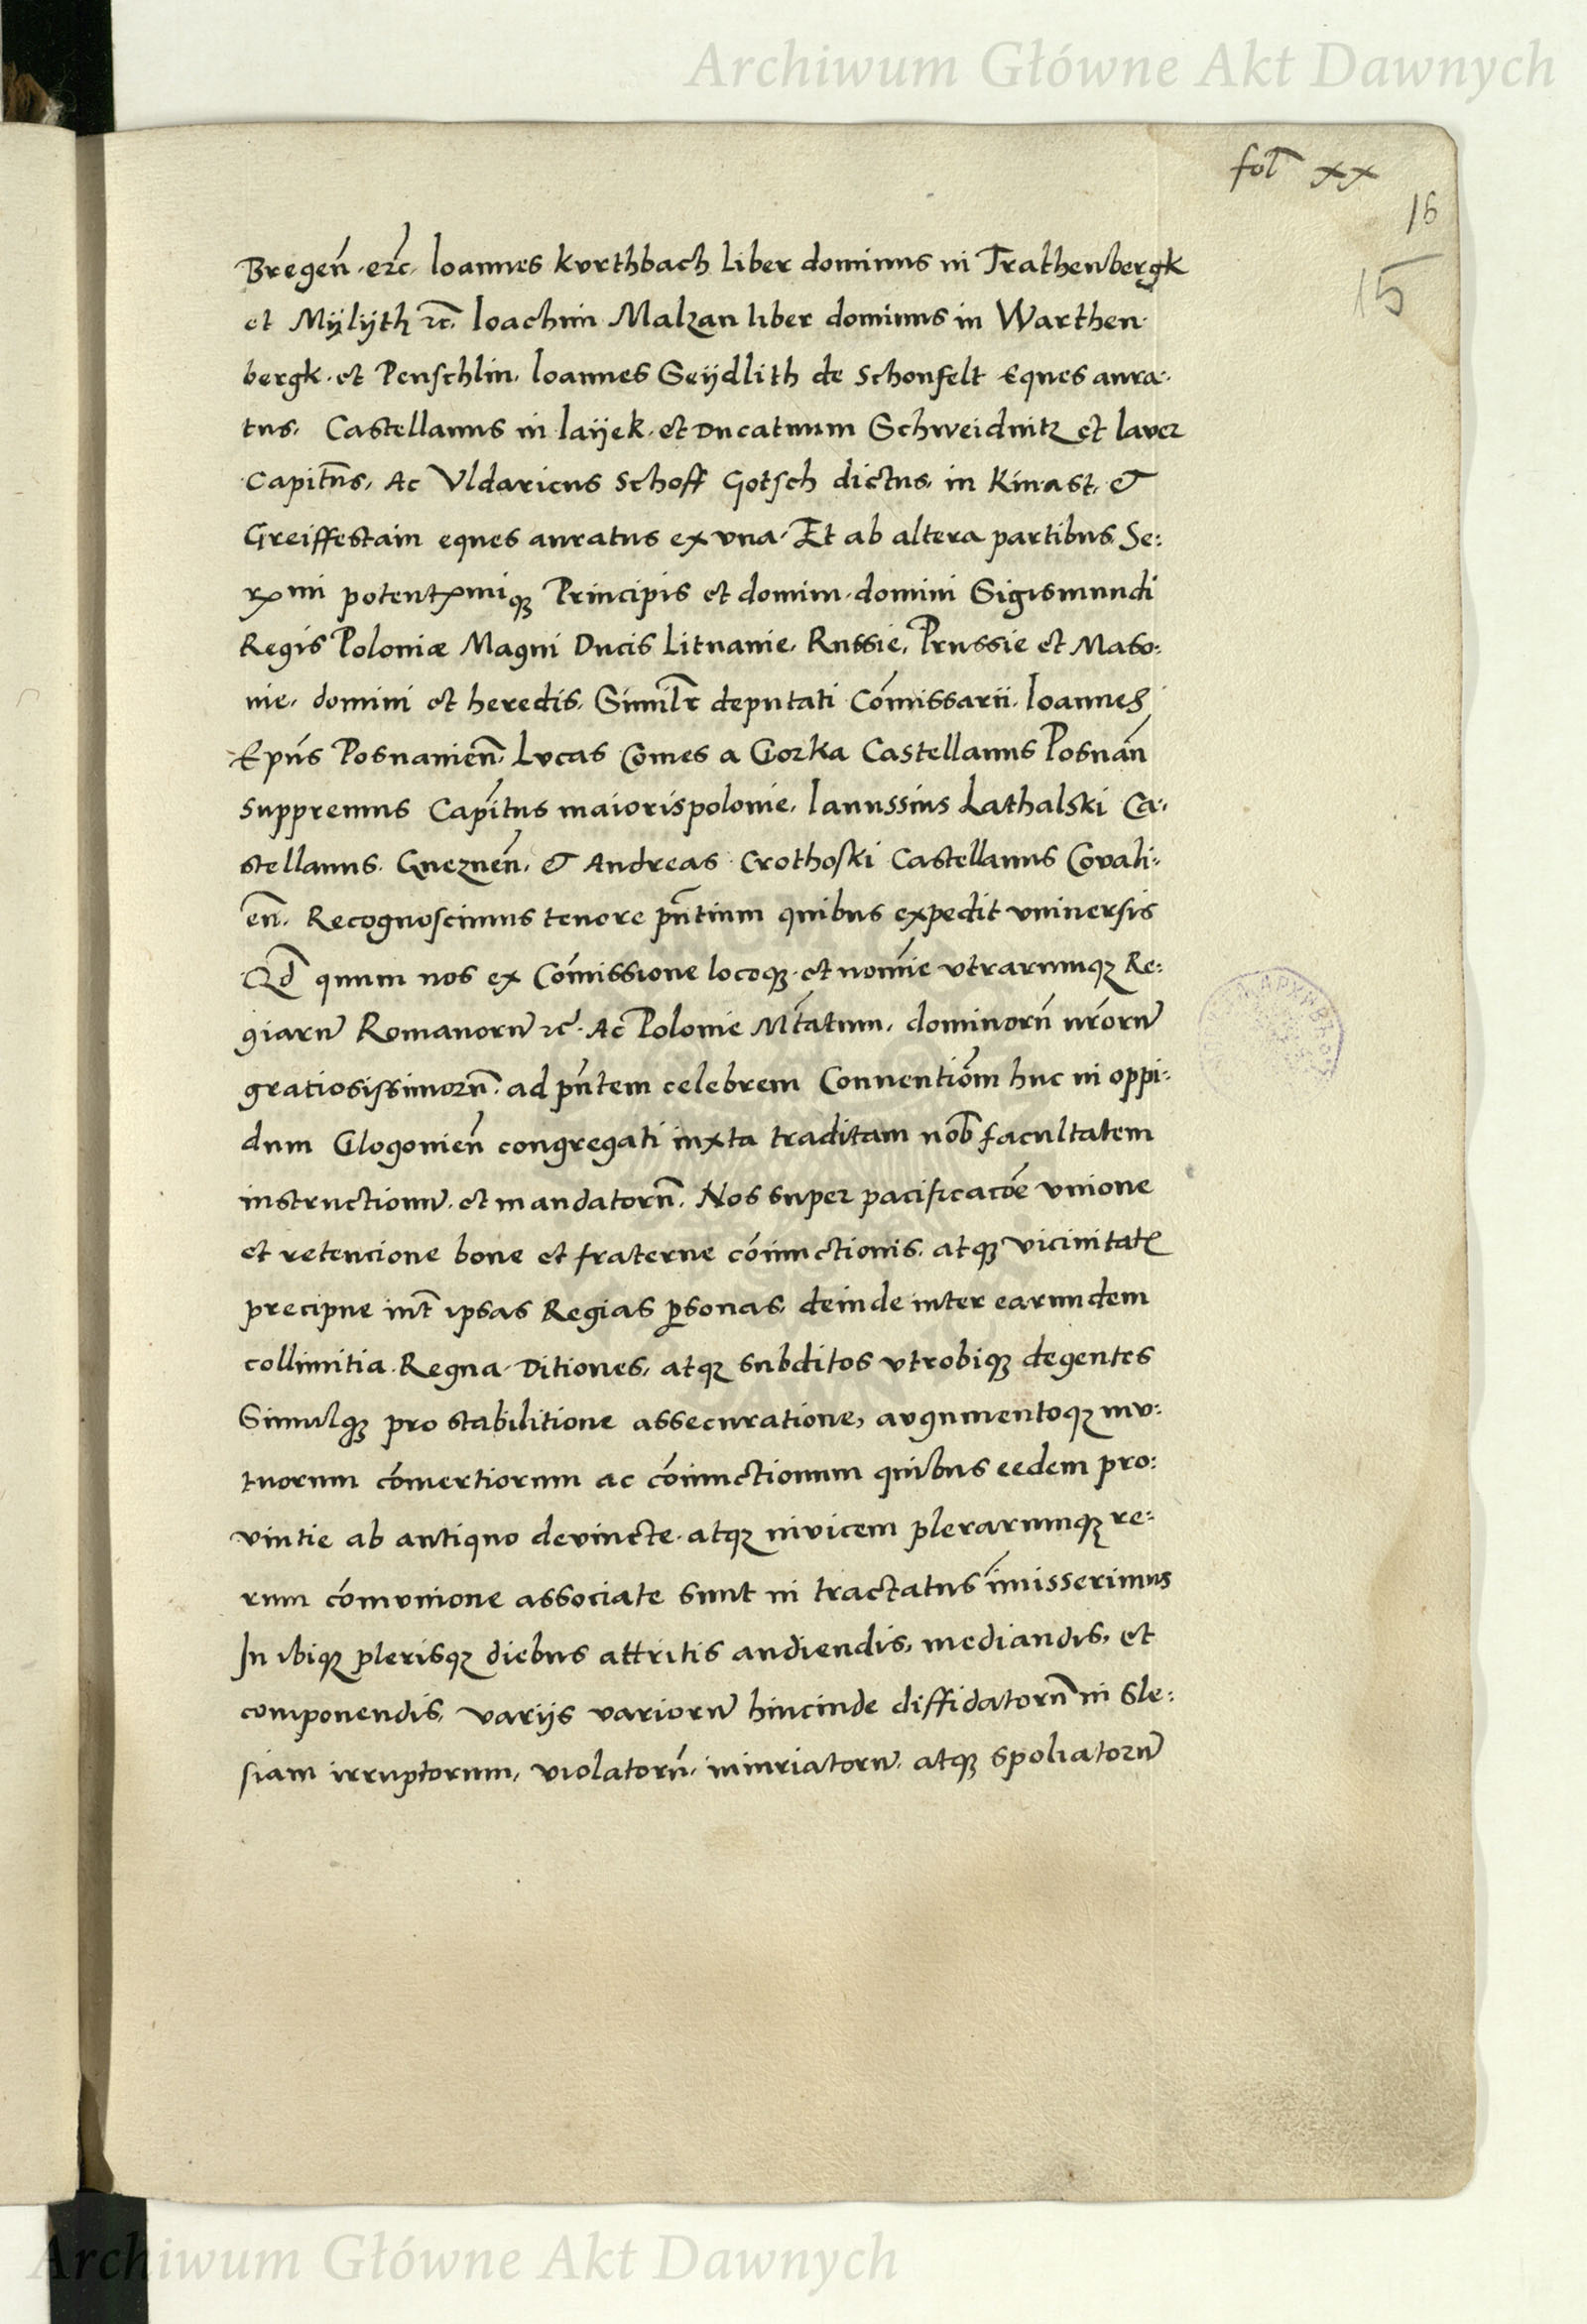 Archiwum Główne Akt Dawnych
fol xx
16
15
Bregeñ. etc̃. Ioannes Kvrthbach Liber dominus in Trathenbergk
et Mÿlÿth ⁊c̃. Ioachim Malzan liber dominus in Warthen-
bergk. et Penschlin. Ioannes Seÿdlith de Schonfelt Eques aura-
tus. Castellanus in laÿek. et Ducatuum Schweidnitz et laver
Capitñs. Ac Vldaricus Schoff Gotsch dictus. in Kinast. &
Greiffestain eques auratus ex vna. Et ab altera partibus. Se:
rxmi potentxmiqꝫ Principis et domini. domini Sigismundi
Regis Poloniæ Magni Ducis Lituanie. Russie. Prussie et Maso:
nie. domini et heredis. Simil̃r deputati Com̃issarii. Ioannes
Ep̃us Posnanieñ. Lvcas Comes a Gorka Castellanus Posnañ
Suppremus Capĩtus maiorispolonie. Ianussius Lathalski Ca-
stellanus. Gnezneñ. & Andreas Crothoski Castellanus Covali-
eñ. Recognoscimus tenore pñtium quibus expedit vniuersis
Qd̃ quum nos ex Com̃issione locoqꝫ. et nom̃ie vtrarumqꝫ Re:
giarũ Romanorũ ⁊c̃. Ac Polonie Mt̃atum. dominorũ nr̃orũ
gratiosissimorũ. ad pñtem celebrem Conuentiõm huc in oppi:
dum Glogonieñ congregati iuxta traditam nob̃ facultatem
instructionũ. et mandatorũ. Nos super pacificacõe vnione
et retencione bone et fraterne cõiunctionis. atqꝫ vicinitatꝭ
precipue int̃ ipsas Regias ꝑsonas. deinde inter earundem
collimitia. Regna. Ditiones. atqꝫ subditos vtrobiqꝫ degentes
Simulqꝫ pro stabilitione assecuratione, avgumentoqꝫ mv:
tuorum com̃ertiorum ac cõiunctionum quibus eedem pro:
vintie ab antiquo devincte. atqꝫ invicem plerarumqꝫ re:
rum com̃vnione associate sunt in tractatus im̃isserimus
In ibiqꝫ plerisqꝫ diebus attritis audiendis, mediandis, et
componendis. varijs variorũ hincinde diffidatorũ in Sle:
siam irruptorum, violatorũ. iniuriatorũ. atqꝫ spoliatorũ
Archiwum Główne Akt Dawnych